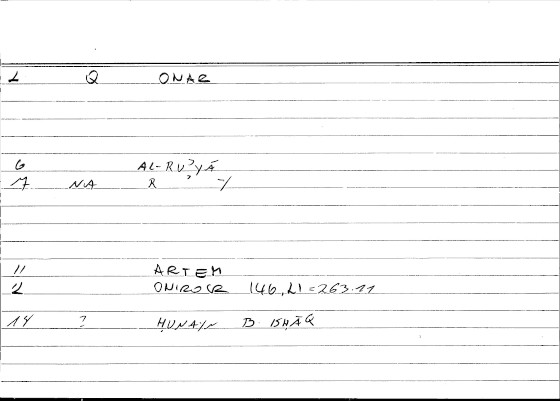 1 Q ONAR
6 AL-RUʾYĀ
7 NA R ʾ Y
11 ARTEM
2 ONIROCR 146,21=263.11
14 ? ḤUNAYN B ISḤĀQ